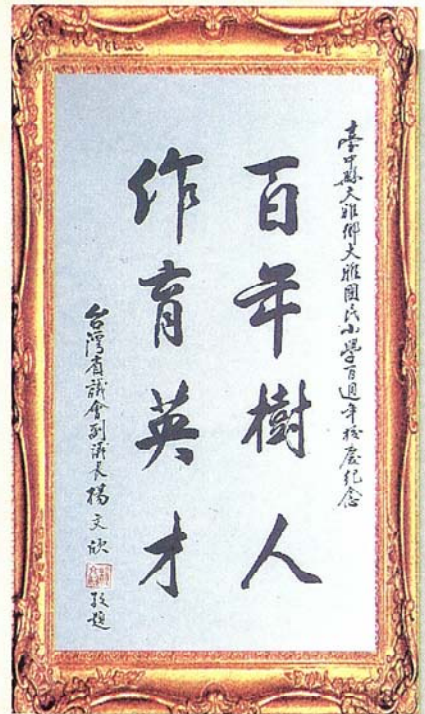 臺中縣大雅鄉大雅國民小學百週年校慶紀念
百年樹人
作育英才
台灣省議會副議長楊文欣
敬題